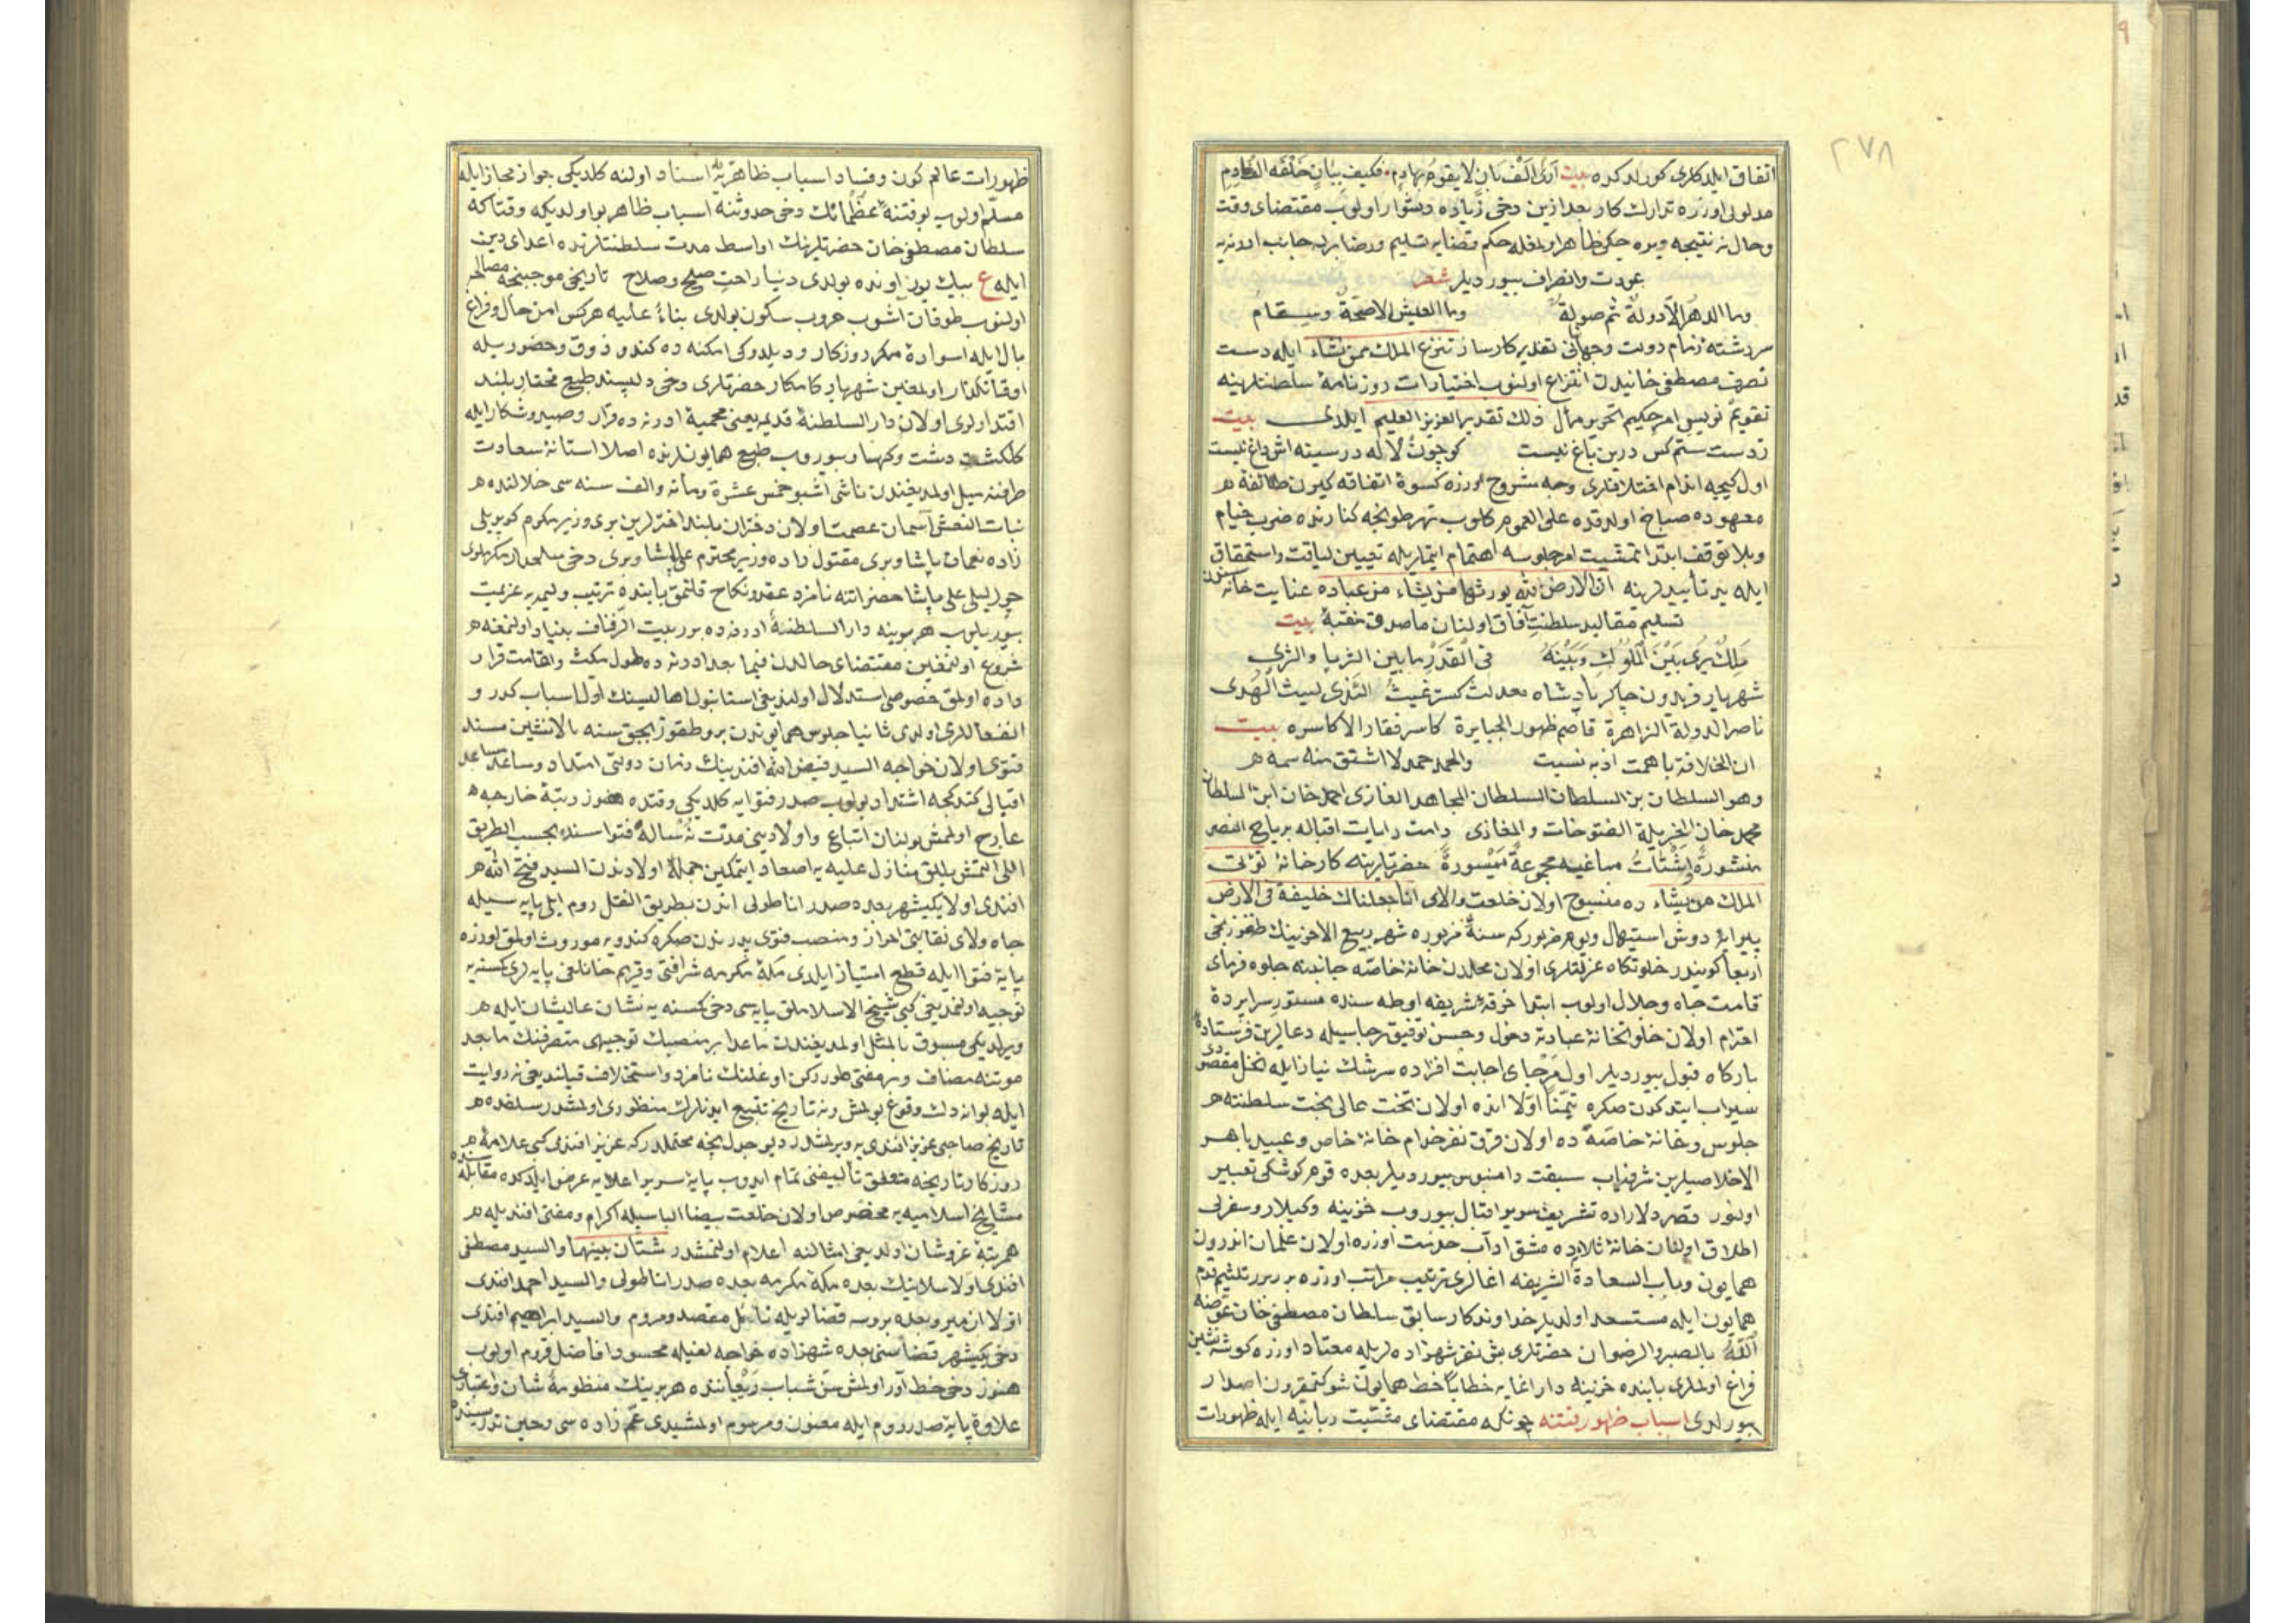 ٢٧٨
اتفاق ايلدكلرى كورلدكده بيت أرى ألف بان لا يقوم بهادم فكيف ببان خلفه الف هادم
مدلولى اوزره تدارك كار بعد ازين دخى زياده دشوار اولوب مقتضاى وقت
وحال نه نتيجه ويره جكى ظاهر اولمغله حكم قضايه تسليم ورضا بريه جانب ادرنه يه
عودت وانصراف بيورديلر شعر
وما الدهر الا دولة ثم صولة وما العيش الا صحة وسقام
سررشته زمام دولت وجهانبانى تقدير كارساز تنزع الملك ممن تشاء ايله دست
تصرف مصطفى خانيدن انتزاع اولنوب اختيارات روزنامهٔ سلطنتلرينه
تقويم نويس امر حكيم التحرير مآل ذلك تقدير العزيز العليم ايلدى بيت
زدست ستم كس درين باغ نيست كو چون لاله در سينه اش داغ نيست
اول كيجه انتظام اختلافلرى وجه مشروح اوزره كسوهٔ اتفاقه كيرن طائفهٔ
معهوده صباح اولدقده على العموم كلوب نهر طونجه كنارنده ضرب خيام
وبلا توقف ابتدا تمشيت امر جلوسه اهتمام ايتملريله تعيين لياقت واستحقاق
ايله ان الارض لله يورثها من يشاء من عباده عنايت خانه سندن
تسليم مقاليد سلطنت آفاق اولنان ما صدق منقبهٔ بيت
ملك يرى بين الملوك وبينه فى القدر ما بين الثريا والثرى
شهريار فريدون چاكر پادشاه معدلت كستر غيث الندى ليث الهدى
ناصر الدولة الزاهرة قاصم ظهور الجبابرة كاسر فقار الاكاسره بيت
وهو السلطان بن السلطان السلطان المجاهد الغازى احمد خان ابن السلطان
محمد خان الجزيلة الفتوحات والمغازى دامت رايات اقباله برياح النصر
منشورة واشتات مساعيه مجموعة ميسورة حضرتلرينه كارخانهٔ تؤتى
الملك من يشاء ده منسوج اولان خلعت والاى انا جعلناك خليفة فى الارض
پيرايهٔ دوش استيهال ويوم مزبور كه سنهٔ مزبوره شهر ربيع الاخرينك طقوزنجى
اربعا كونيدر خلوتكاه عزلتلرى اولان محلدن خانهٔ خاصه جانبنه جلوه فرماى
قامت جاه وجلال اولوب ابتدا خرقهٔ شريفه اوطه سنده مستور سراپردهٔ
احترام اولان خلوتخانهٔ عبادته دخول وحسن توفيق رجاسيله دعالرين فرستادهٔ
باركاه قبول بيورديلر اول مرجاى اجابت افزاده سرشك نياز ايله نخل مقصودى
سيراب ايتدكدن صكره تيمنا اولا انده اولان تخت عالى بخت سلطنته
جلوس وخانهٔ خاصه ده اولان قرق نفر خدام خانهٔ خاص وعبيد باهر
الاخلاصلرين شرفياب سبقت دامنبوس بيورديلر بعده قوم كوشكى تعبير
اولنور قصر دلاراده تشريف سرير اقبال بيوروب خزينه وكيلار وسفرلى
اطلاق اولنان خانهٔ ثلاثه ده مشق آداب خدمت اوزره اولان غلمان اندرون
همايون وباب السعادة الشريفه اغالرى ترتيب مراتب اوزره برر برر تلثيم قدم
همايون ايله مستسعد اولديلر خداوندكار سابق سلطان مصطفى خان عوضه
الله بالصبر والرضوان حضرتلرى بش نفر شهزاده لريله معتاد اوزره كوشه نشين
فراغ اولملرى بابنده خزينه دار اغايه خطابا خط همايون شوكتمقرون اصدار
بيورلدى اسباب ظهور فتنه چونكه مقتضاى مشيت ربانيه ايله ظهورات
ظهورات عالم كون وفساد اسباب ظاهريه يه اسناد اولنه كلديكى جواز مجاز ايله
مسلم اولوب بو فتنهٔ عظمانك دخى حدوثنه اسباب ظاهر بو اولديكه وقتاكه
سلطان مصطفى خان حضرتلرينك اواسط مدت سلطنتلرنده اعداى دين
ايله ع بيك يوز اونده بولدى دنيا راحت صلح وصلاح تاريخى موجبنجه مصالحه
اولنوب طوفان آشوب حروب سكون بولدى بناءً عليه هركس امن حال وفراغ
بال ايله اسوادهٔ مكر روزكار وديلدوكى امكنه ده كندو ذوق وحضوريله
اوقاتكذار اولمغين شهريار كامكار حضرتلرى دخى دلپسند طبع مختار بلند
اقتدارلرى اولان دار السلطنهٔ قديمه يعنى محميهٔ ادرنه ده قرار وصيد وشكار ايله
كلكشت دشت وكهسار بيوروب طبع همايونلرنده اصلا استانهٔ سعادت
طرفنه ميل اولمديغندن ناشى اشبو خمس عشرة ومأئه والف سنه سى خلالنده
بنات النعش آسمان عصمت اولان دختران بلند اخترلرين برى وزير مكرم كوپريلى
زاده نعمان پاشا وبرى مقتول زاده وزير محترم على پاشا وبرى دخى سلحدار مكرملرى
چورليلى على پاشا حضراتنه نامزد عقد ونكاح قلنمق بابنده ترتيب وليمه يه عزيمت
بيوريلوب هر برينه دار السلطنهٔ ادرنه ده برر بيت الزفاف بنياد اولنمغه
شروع اولنمغين مقتضاى حالدن فيما بعد ادرنه ده طول مكث واقامت قرار
داده اولمق خصوصى استدلال اولنديغى استانبول اهاليسينك اول اسباب كدر و
انفعاللرى اولدى ثانيا جلوس همايوندن برو طقوز بچق سنه بالانشين مسند
فتوى اولان خواجه السيد فيض الله افندينك زمان دولتى امتداد وساعد مساعد
اقبالى كتدكجه اشتداد بولوب صدر فتوايه كلديكى وقتده هنوز رتبهٔ خارجه
عارج اولمش بولنان اتباع واولادينى مدت نه ساله فتواسنده بحسب الطريق
اللى التمش ييللق منازل عليه يه اصعاد ايتمكين جملهٔ اولادندن السيد فتح الله
افندى اولا يكيشهر بعده صدر اناطولى اندن بطريق النقل روم ايلى پايه سيله
جاه والاى نقابتى احراز ومنصب فتوى پدرندن صكره كندويه موروث اولمق اوزره
پايهٔ فتوا ايله قطع امتياز ايلدى مكهٔ مكرمه شرافتى وقريم خانلغى پايه لرى كسنه يه
توجيه اولنمديغى كبى شيخ الاسلاملق پايه سى دخى كسنه يه نشان عاليشان ايله
ويرلديكى مسبوق بالمثل اولمديغندن ماعدا بر منصبك توجيهى متصرفنك ما بعد
موتنه مضاف وبر مفتى طوررکن اوغلنك نامزد واستخلاف قيلنديغى نه روايت
ايله بو انه دك وقوع بولمش ونه تاريخ تتبع ايدنلرك منظورى اولمشدر سلفده
تاريخ صاحبى عزيز افندى يه ويرلمشدر ديو جوابجه محتملدر كه عزيز افندى كبى علامهٔ
روزكار تاريخه متعلق تأليفنى تمام ايدوب پايهٔ سرير اعلايه عرض ايلدكده مقابله سنده
مشايخ اسلاميه يه مخصوص اولان خلعت بيضا الباسيله اكرام ومفتى افنديله
همرتبهٔ عز وشان اولديغى امثالنه اعلام اولنمشدر شتان بينهما والسيد مصطفى
افندى اولا سلانيك بعده مكهٔ مكرمه بعده صدر اناطولى والسيد احمد افندى
اولا ازمير وبعده بروسه قضالريله نائل مقصد ومروم والسيد ابراهيم افندى
دخى يكيشهر قضاسنى بعده شهزاده خواجه لغيله محسود افاضل قروم اولوب
هنوز دخى خط آور اولمش سن شباب ريعاننده هر برينك منظومهٔ شان واعتبارى
علاوهٔ پايهٔ صدر روم ايله معنون ومرسوم اولمشيدى عم زاده سى وحين تدريسنده